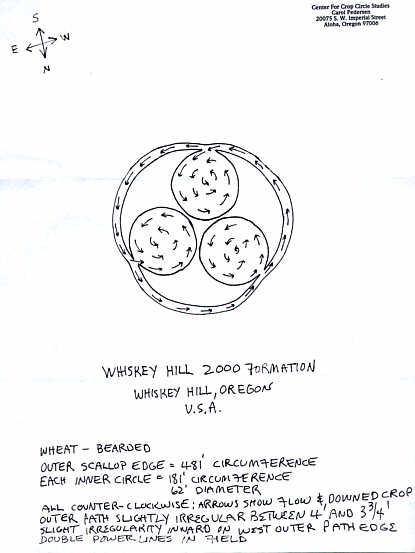 Center For Crop Circle Studies
Carol Pedersen
20075 S. W. Imperial Street
Aloha, Oregon 97006
S
E W
N
WHISKEY HILL 2000 FORMATION
WHISKEY HILL, OREGON
U.S.A.
WHEAT - BEARDED
OUTER SCALLOP EDGE = 481' CIRCUMFERENCE
EACH INNER CIRCLE = 181' CIRCUMFERENCE
62' DIAMETER
ALL COUNTER-CLOCKWISE; ARROWS SHOW FLOW & DOWNED CROP
OUTER PATH SLIGHTLY IRREGULAR BETWEEN 4' AND 3 3/4'
SLIGHT IRREGULARITY INWARD ON WEST OUTER PATH EDGE
DOUBLE POWER LINES IN FIELD